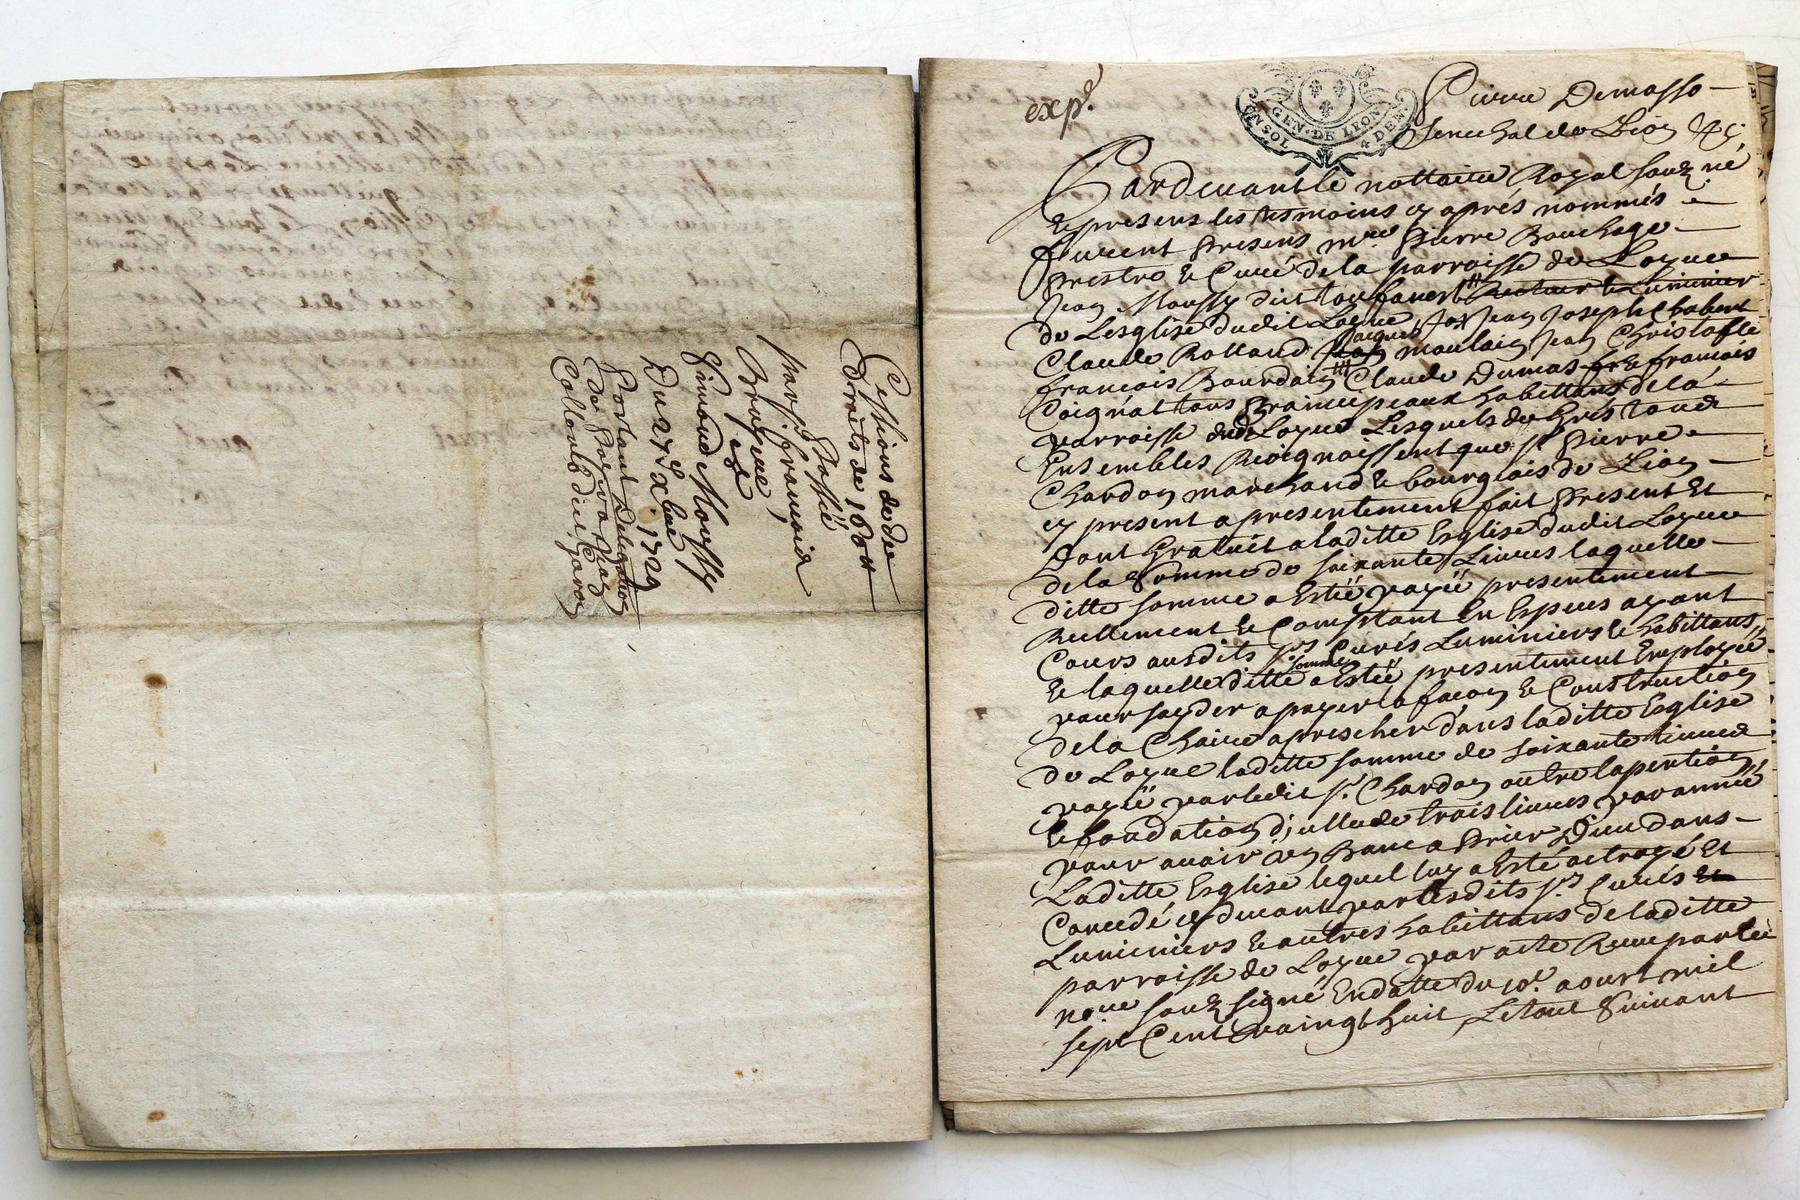 Cessions de de
droits de 180 tt
passé
par françois
Bruyere,
et
Simond Moussy
Du 27e 8bre 1729
Portant delegation
expé.
GEN. DE LION
UN SOL 4 DEN.
Pierre Demasso
Senechal de Lion &c
Pardevant le nottaire Royal souzné
& presens les tesmoins cy aprés nommés
furent presens mre Pierre Bouchage
prestre & Curé de la parroisse de Loyue
Jean Moussy dit toufanert Recteur & Luminier
de Lesglise dudit Loyue, Jean Joseph Chabert
Claude Rolland Jacques moulain Jean Christofle
francois Bourdain Claude Dumas & francois
Coignat tous Principeaux habittans de la
parroisse dud Loyue Lesquels de Gris tous
Ensembles Recognoissent que sr Pierre
Chardon marchand & bourgeois de Lion
cy present a presentement fait Present Et
Dont Gratuit a laditte Esglise dudit Loyue
de la Somme de soixante Liures laquelle
ditte somme a Estéé payéé presentement
Reellement & Comptant En Especes ayant
Cours ausdits srs Curés Luminiers & habittans,
& laquelle ditte somme a Estéé presentement Employéé
pour sayder a payer la façon & Construction
de la Chaire a prescher dans laditte Esglise
de Loyue laditte somme de soixante liures
payéé par ledit sr Chardon outre la pention,
& fondation d'jcelle de trois liures par année
pour auoir un Banc a Prier Dieu dans
Laditte Esglise lequel luy a Esté octroyé Et
Concedé cy deuant par lesdits srs Curés Et
Luminiers & autres habittans de laditte
parroisse de Loyue par acte Receu par le
noue souz signé En datte du 10e aoust mil
sept Cent vaingt huit Le tout Suiuant